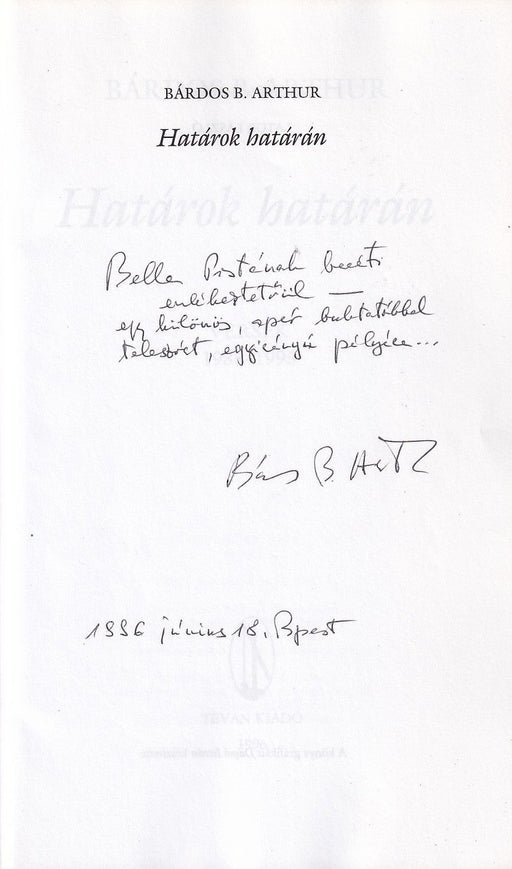 BÁRDOS B. ARTHUR
Határok határán
Bella Pistának baráti
emlékeztetőül —
egy különös, apró buktatókkal
teleszőtt, egyirányú pályára...
Bárdos B. Arthur
1996 június 18. Bpest
TEVAN KIADÓ